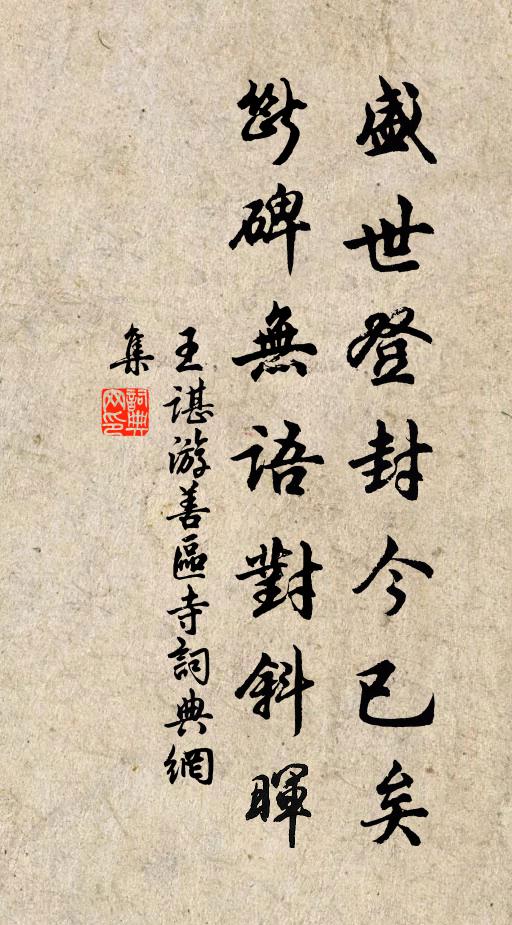 盛世登封今已矣
斷碑無語對斜暉
王谌游善區寺詞典網
集
詞典
网印